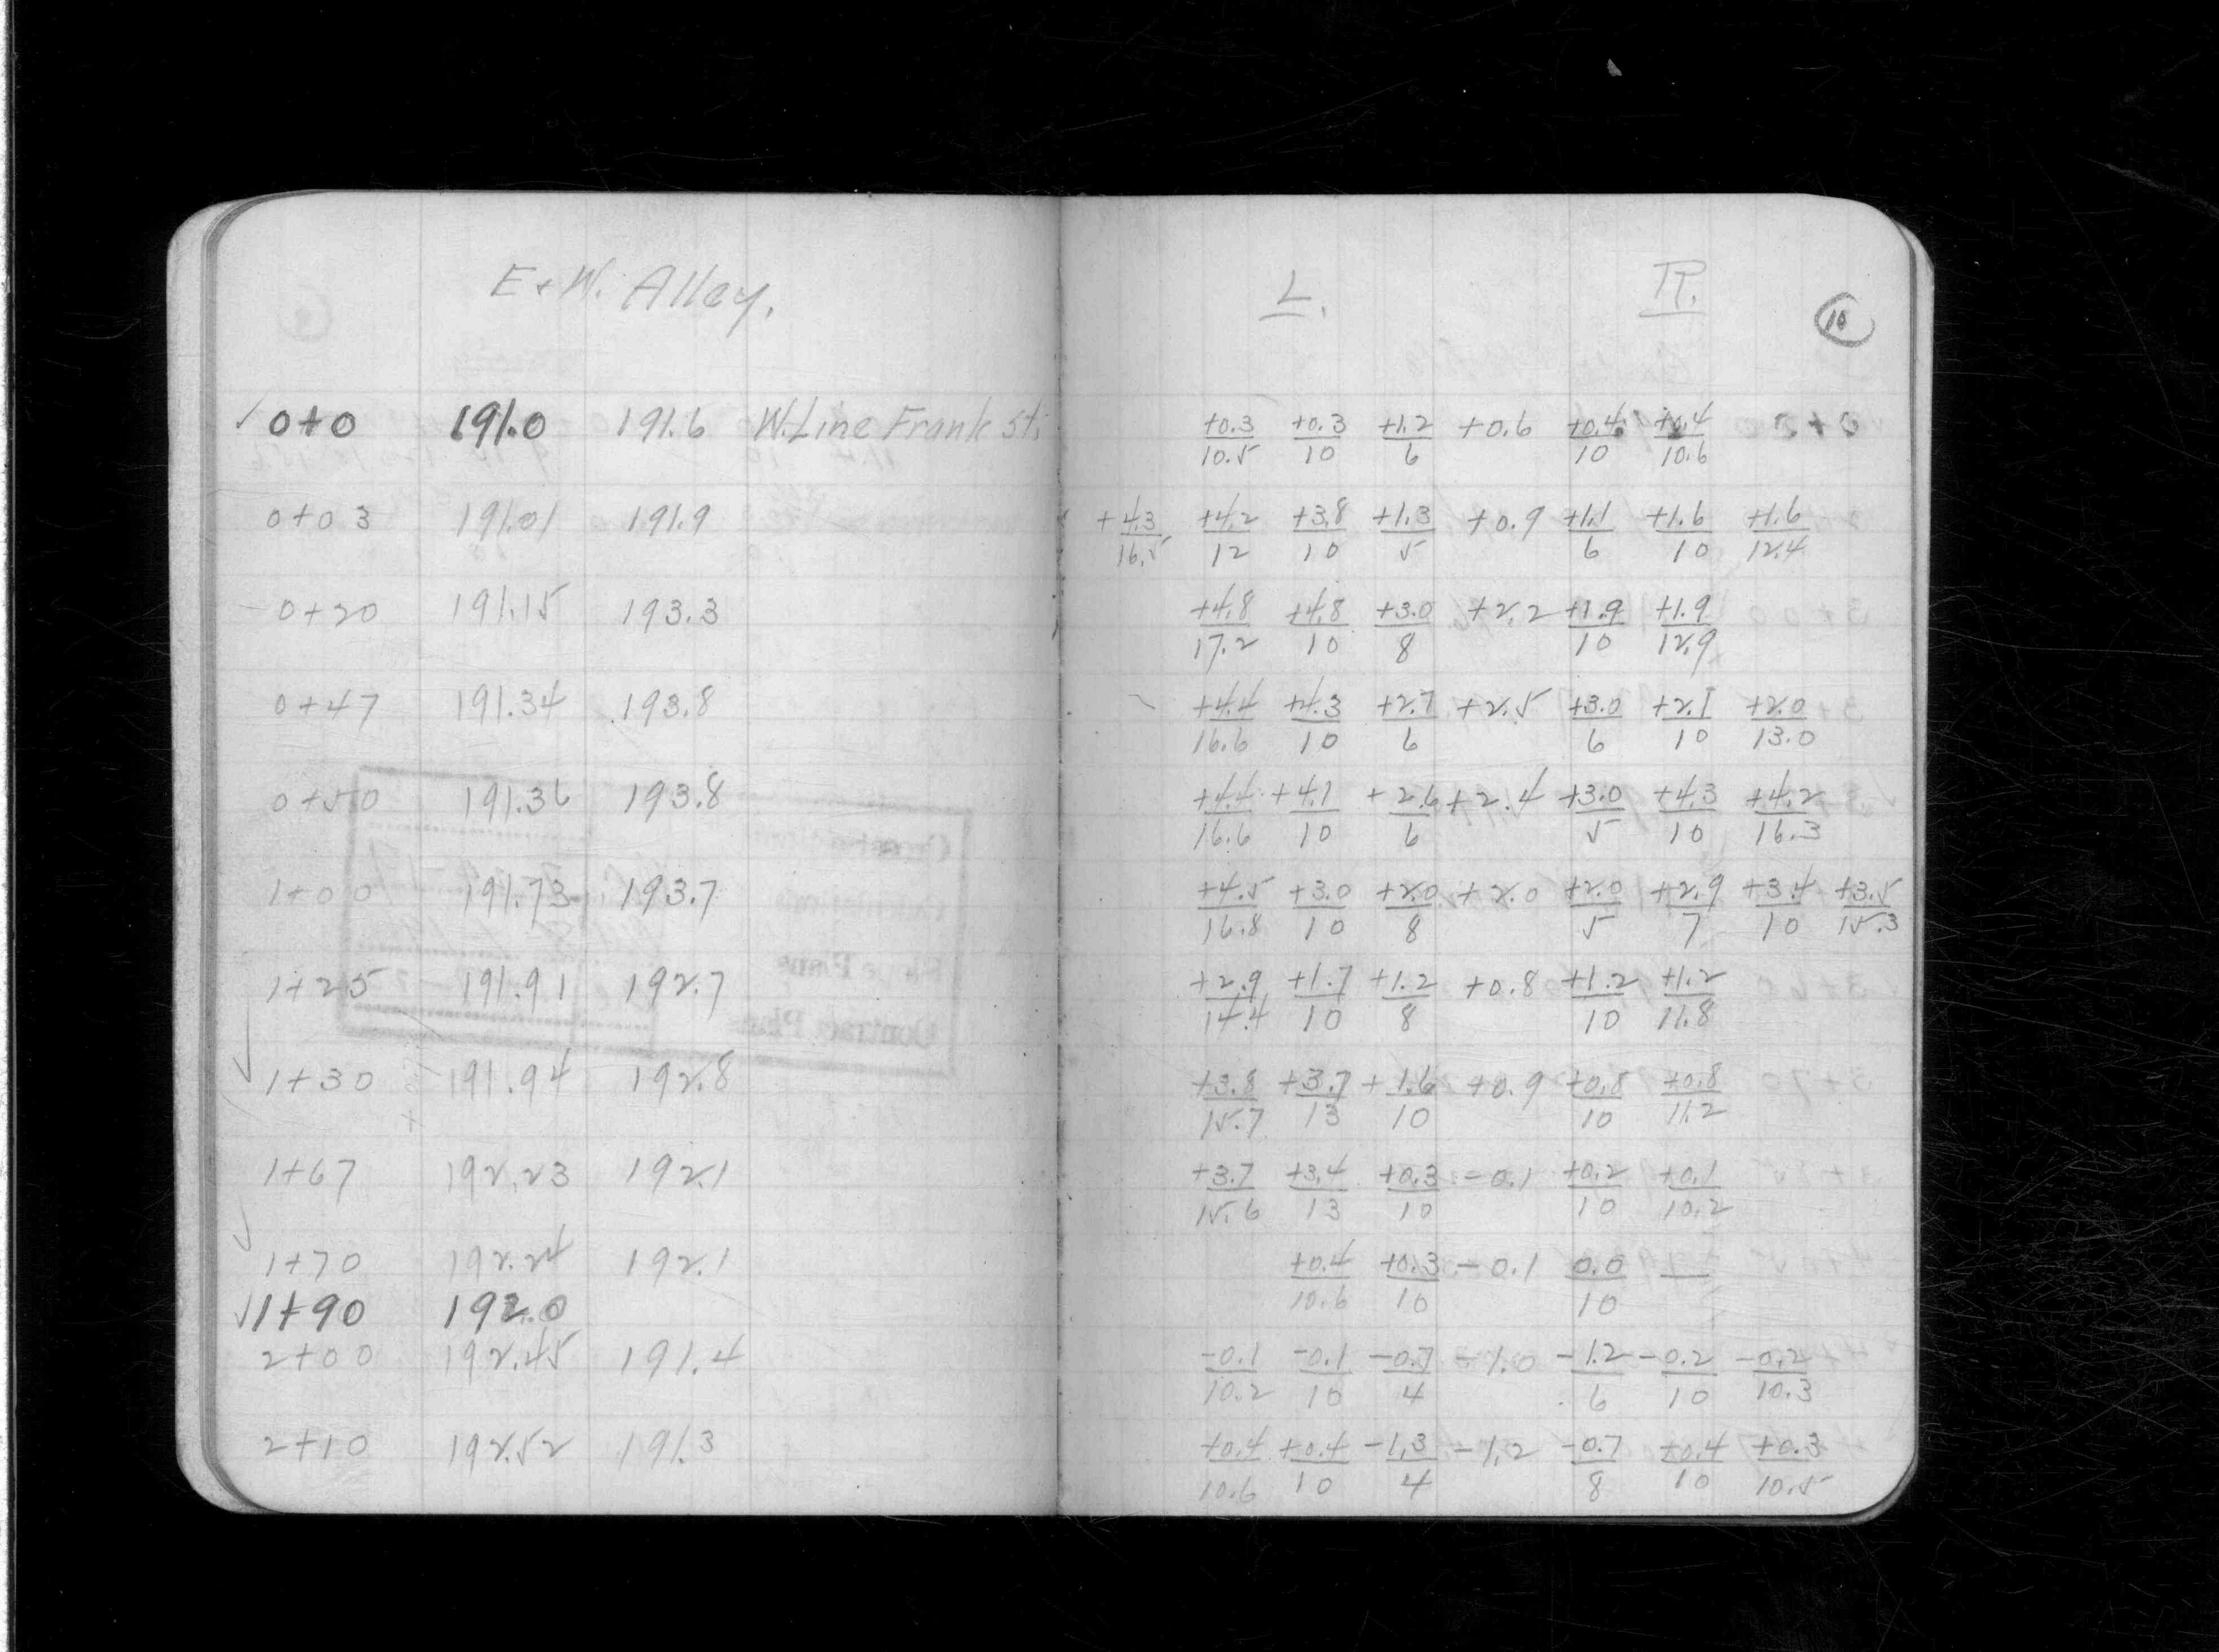 E+W. Alley.
L. R.
10
✓ 0+0 191.0 191.6 W. Line Frank St. +0.3/10.5 +0.3/10 +1.2/6 +0.6 +0.4/10 +0.4/10.6
0+03 191.01 191.9 +4.3/16.5 +4.2/12 +3.8/10 +1.3/5 +0.9 +1.1/6 +1.6/10 +1.6/12.4
0+20 191.15 193.3 +4.8/17.2 +4.8/10 +3.0/8 +2.2 +1.9/10 +1.9/12.9
0+47 191.34 193.8 +4.4/16.6 +4.3/10 +2.7/6 +2.5 +3.0/6 +2.1/10 +2.0/13.0
0+50 191.36 193.8 +4.4/16.6 +4.1/10 +2.6/6 +2.4 +3.0/5 +4.3/10 +4.2/16.3
1+00 191.73 193.7 +4.5/16.8 +3.0/10 +2.0/8 +2.0 +2.0/5 +2.9/7 +3.4/10 +3.5/15.3
1+25 191.91 192.7 +2.9/14.4 +1.7/10 +1.2/8 +0.8 +1.2/10 +1.2/11.8
✓ 1+30 191.94 192.8 +3.8/15.7 +3.7/13 +1.6/10 +0.9 +0.8/10 +0.8/11.2
1+67 192.23 192.1 +3.7/15.6 +3.4/13 +0.3/10 -0.1 +0.2/10 +0.1/10.2
✓ 1+70 192.24 192.1 +0.4/10.6 +0.3/10 -0.1 0.0/10 —
✓ 1+90 192.0
2+00 192.45 191.4 -0.1/10.2 -0.1/10 -0.7/4 -1.0 -1.2/6 -0.2/10 -0.2/10.3
2+10 192.52 191.3 +0.4/10.6 +0.4/10 -1.3/4 -1.2 -0.7/8 +0.4/10 +0.3/10.5